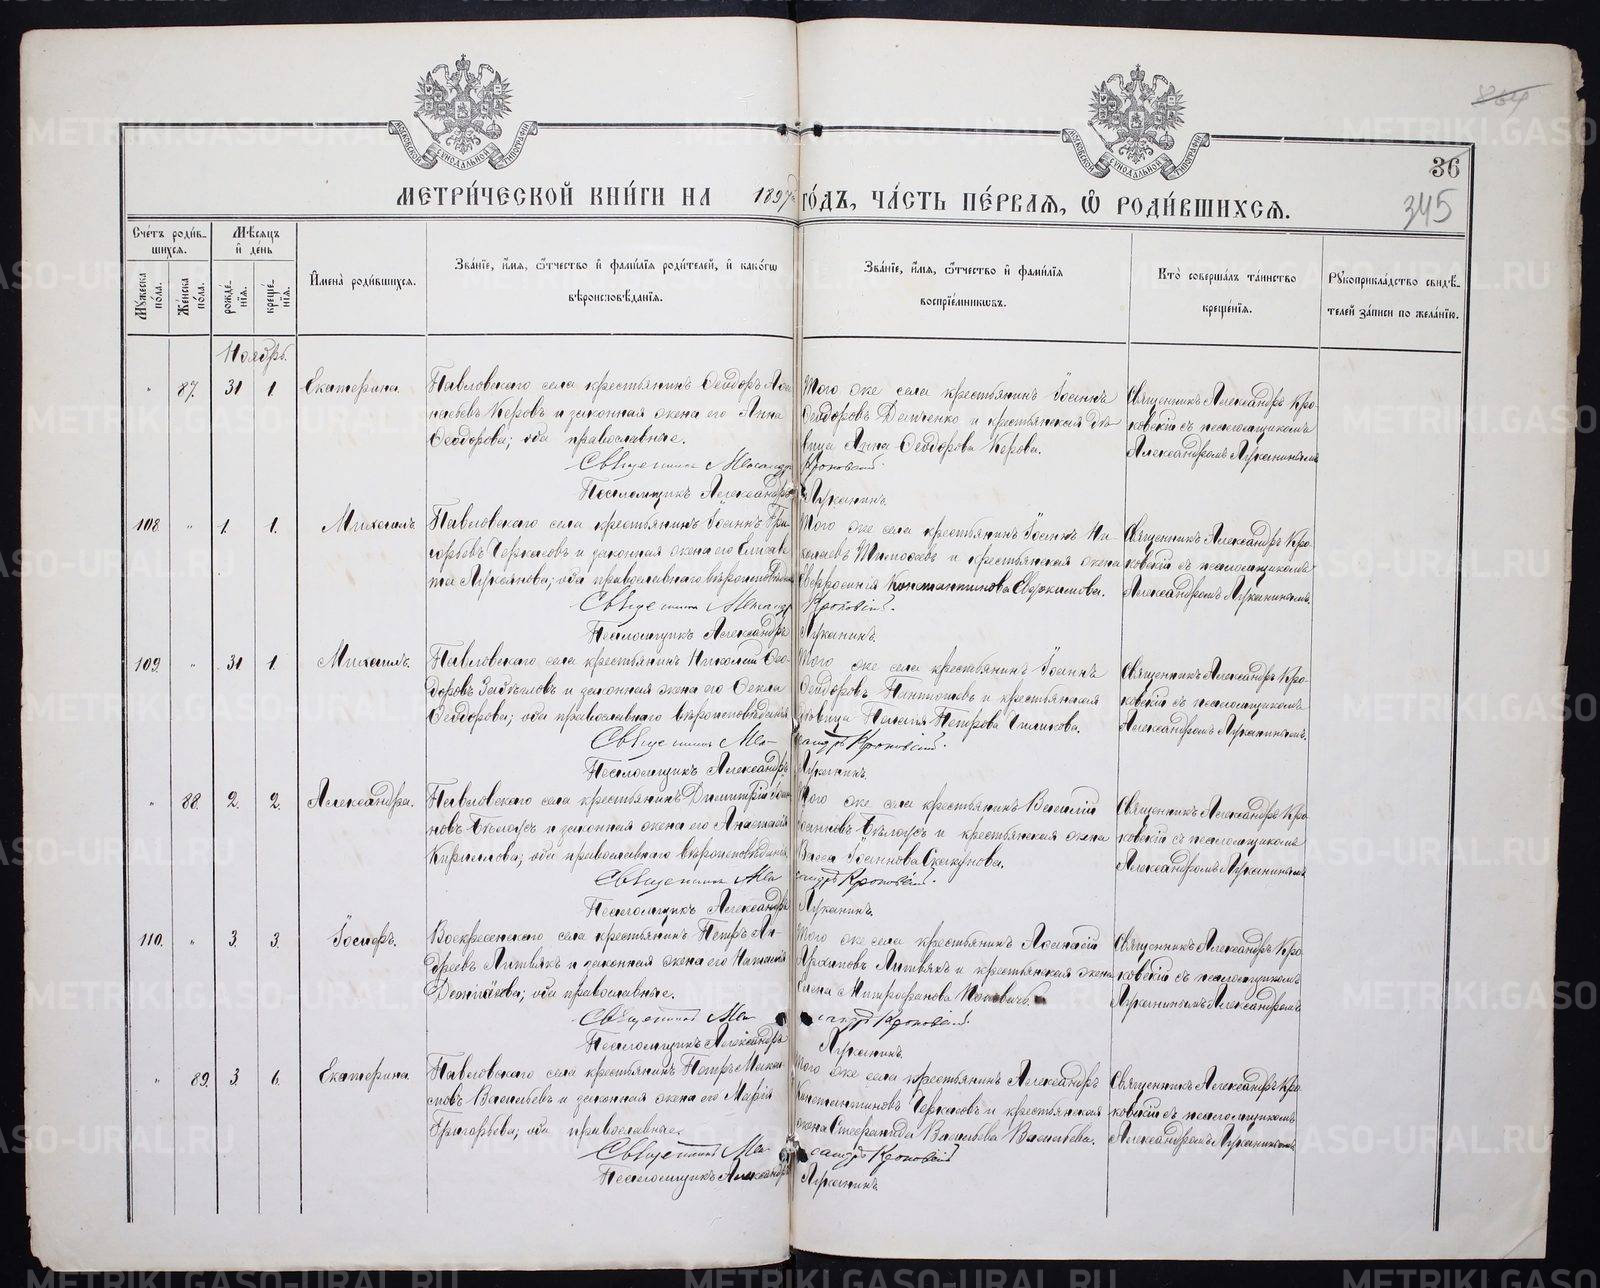 МЕТРИ́ЧЕСКОЙ КНИ́ГИ НА 1897 ГО́ДЪ, ЧА́СТЬ ПЕ́РВАЯ, Ѿ РОДИ́ВШИХСЯ.
36
345
Сче́тъ роди́вшихся.
Мѣ́сяцъ и де́нь
Мꙋ́жеска по́ла.
Же́нска по́ла.
рожде́нїя.
креще́нїя.
Имена̀ роди́вшихся.
Зва́нїе, и́мя, ѻ́тчество и фами́лїя роди́телей, и како́гѡ
вѣроисповѣ́данїя.
Зва́нїе, и́мя, ѻ́тчество и фами́лїя
воспрїе́мникѡвъ.
Кто̀ соверша́лъ та́инство
креще́нїя.
Рꙋкоприкла́дство свидѣ́-
телей за́писи по жела́нїю.
Ноябрь.
" 87. 31 1. Екатерина.
Павловскаго села крестьянинъ Ѳеодоръ
Керовъ и законная жена его Анна
Ѳеодорова; оба православные.
Священникъ Александръ Кроковскій.
Псаломщикъ Александръ Луканинъ.
Того же села крестьянинъ Іоаннъ
Ѳеодоровъ Демченко и крестьянская дѣ-
вица Анна Ѳеодорова Керова.
Священникъ Александръ Кро-
ковскій съ псаломщикомъ
Александромъ Луканинымъ
108 " 1. 1. Михаилъ
Павловскаго села крестьянинъ Іоаннъ Гри-
горьевъ Черкасовъ и законная жена его Елисаве-
та Лукьянова; оба православнаго вѣроисповѣданія
Священникъ Александръ Кроковскій.
Псаломщикъ Александръ Луканинъ.
Того же села крестьянинъ Іоаннъ Ни-
колаевъ и крестьянская жена
Евфросинія Константинова Евдокимова.
Священникъ Александръ Кро-
ковскій съ псаломщикомъ
Александромъ Луканинымъ.
109. " 31 1. Михаилъ.
Павловскаго села крестьянинъ Николай Ѳео-
доровъ и законная жена его Ѳекла
Ѳеодорова; оба православнаго вѣроисповѣданія
Священникъ Александръ Кроковскій.
Псаломщикъ Александръ Луканинъ.
Того же села крестьянинъ Іоаннъ
Ѳеодоровъ и крестьянская
дѣвица Петрова
Священникъ Александръ Кро-
ковскій съ псаломщикомъ
Александромъ Луканинымъ.
" 88. 2. 2. Александра.
Павловскаго села крестьянинъ Димитрій Іоан-
новъ Бѣлоусъ и законная жена его Анастасія
Кириллова; оба православнаго вѣроисповѣданія
Священникъ Александръ Кроковскій.
Псаломщикъ Александръ Луканинъ.
Того же села крестьянинъ Василій
Іоанновъ Бѣлоусъ и крестьянская жена
Васса Іоаннова Скакунова.
Священникъ Александръ Кро-
ковскій съ псаломщикомъ
Александромъ Луканинымъ
110. " 3. 3. Іосифъ.
Воскресенскаго села крестьянинъ Петръ Ан-
дреевъ Литвякъ и законная жена его Наталія
Леонтіева; оба православные.
Священникъ Александръ Кроковскій.
Псаломщикъ Александръ Луканинъ.
Того же села крестьянинъ Аѳанасій
Архиповъ Литвякъ и крестьянская жена
Елена Митрофанова
Священникъ Александръ Кро-
ковскій съ псаломщикомъ
Луканинымъ Александромъ
" 89. 3. 6. Екатерина.
Павловскаго села крестьянинъ Петръ Макси-
мовъ Васильевъ и законная жена его Марія
Григорьева; оба православные.
Священникъ Александръ Кроковскій
Псаломщикъ Александръ Луканинъ.
Того же села крестьянинъ Александръ
Константиновъ Черкасовъ и крестьянская
жена Стефанида Васильева Васильева.
Священникъ Александръ Кро-
ковскій съ псаломщикомъ
Александромъ Луканинымъ
METRIKI.GASO-URAL.RU